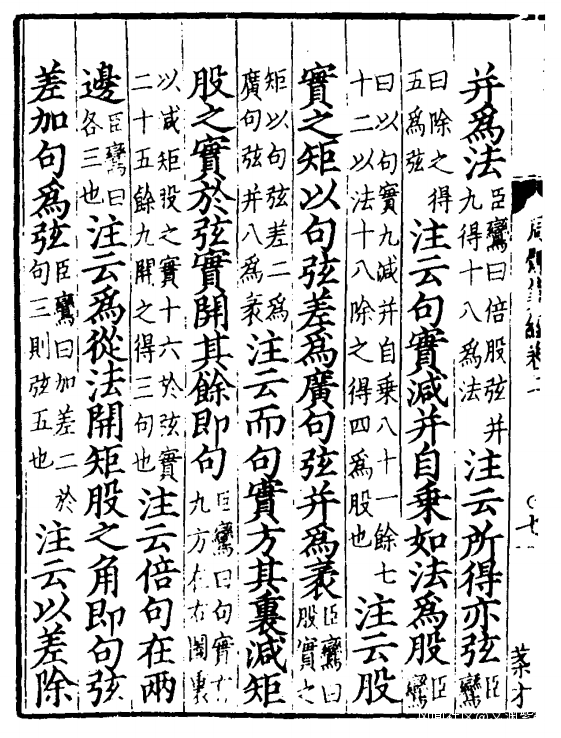 周髀算經卷二
七
并爲法臣鸞曰倍股弦并九得十八爲法注云所得亦弦臣鸞
曰除之得五爲弦注云句實減并自乘如法爲股臣鸞
曰以句實九減并自乘八十一餘七十二以法十八除之得四爲股也注云股
實之矩以句弦差爲廣句弦并爲袤臣鸞曰股實之
矩以句弦差二爲廣句弦并八爲袤注云而句實方其裏減矩
股之實於弦實開其餘即句臣鸞曰句實九方在右圖裏
以減矩股之實十六於弦實二十五餘九開之得三句也注云倍句在兩
邊臣鸞曰各三也注云爲從法開矩股之角即句弦
差加句爲弦臣鸞曰加差二於句三則弦五也注云以差除